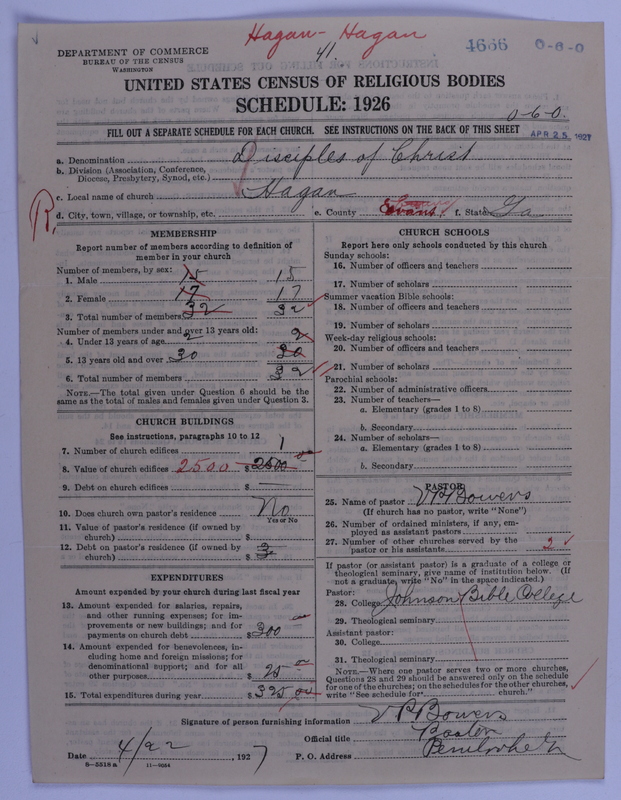 Hagan - Hagan
41
4666 0-6-0
DEPARTMENT OF COMMERCE
BUREAU OF THE CENSUS
WASHINGTON
UNITED STATES CENSUS OF RELIGIOUS BODIES
SCHEDULE: 1926
0-6-0.
FILL OUT A SEPARATE SCHEDULE FOR EACH CHURCH. SEE INSTRUCTIONS ON THE BACK OF THIS SHEET
APR 25 1927
a. Denomination Disciples of Christ
b. Division (Association, Conference,
Diocese, Presbytery, Synod, etc.)
c. Local name of church Hagan
d. City, town, village, or township, etc. e. County Evans f. State Ga
MEMBERSHIP
Report number of members according to definition of
member in your church
Number of members, by sex:
1. Male 15 15
2. Female 17 17
3. Total number of members 32 32
Number of members under and over 13 years old:
4. Under 13 years of age 2 2
5. 13 years old and over 30 30
6. Total number of members 32
NOTE.—The total given under Question 6 should be the
same as the total of males and females given under Question 3.
CHURCH BUILDINGS
See instructions, paragraphs 10 to 12
7. Number of church edifices 1
8. Value of church edifices 2500 $2500
9. Debt on church edifices $ —
10. Does church own pastor's residence No
Yes or No
11. Value of pastor's residence (if owned by
church) $
12. Debt on pastor's residence (if owned by
church) $
EXPENDITURES
Amount expended by your church during last fiscal year
13. Amount expended for salaries, repairs,
and other running expenses; for im-
provements or new buildings; and for
payments on church debt $300
14. Amount expended for benevolences, in-
cluding home and foreign missions; for
denominational support; and for all
other purposes $25
15. Total expenditures during year $325
CHURCH SCHOOLS
Report here only schools conducted by this church
Sunday schools:
16. Number of officers and teachers
17. Number of scholars
Summer vacation Bible schools:
18. Number of officers and teachers
19. Number of scholars
Week-day religious schools:
20. Number of officers and teachers
21. Number of scholars
Parochial schools:
22. Number of administrative officers
23. Number of teachers—
a. Elementary (grades 1 to 8)
b. Secondary
24. Number of scholars—
a. Elementary (grades 1 to 8)
b. Secondary
PASTOR
25. Name of pastor V P Bowers
(If church has no pastor, write "None")
26. Number of ordained ministers, if any, em-
ployed as assistant pastors
27. Number of other churches served by the
pastor or his assistants 2
If pastor (or assistant pastor) is a graduate of a college or
theological seminary, give name of institution below. (If
not a graduate, write "No" in the space indicated.)
Pastor:
28. College Johnson Bible College
29. Theological seminary
Assistant pastor:
30. College
31. Theological seminary
NOTE.—Where one pastor serves two or more churches,
Questions 28 and 29 should be answered only on the schedule
for one of the churches; on the schedules for the other churches,
write "See schedule for church."
Signature of person furnishing information V P Bowers
Official title Pastor
Date 4/22, 1927 P. O. Address
8-5518a 11-9054